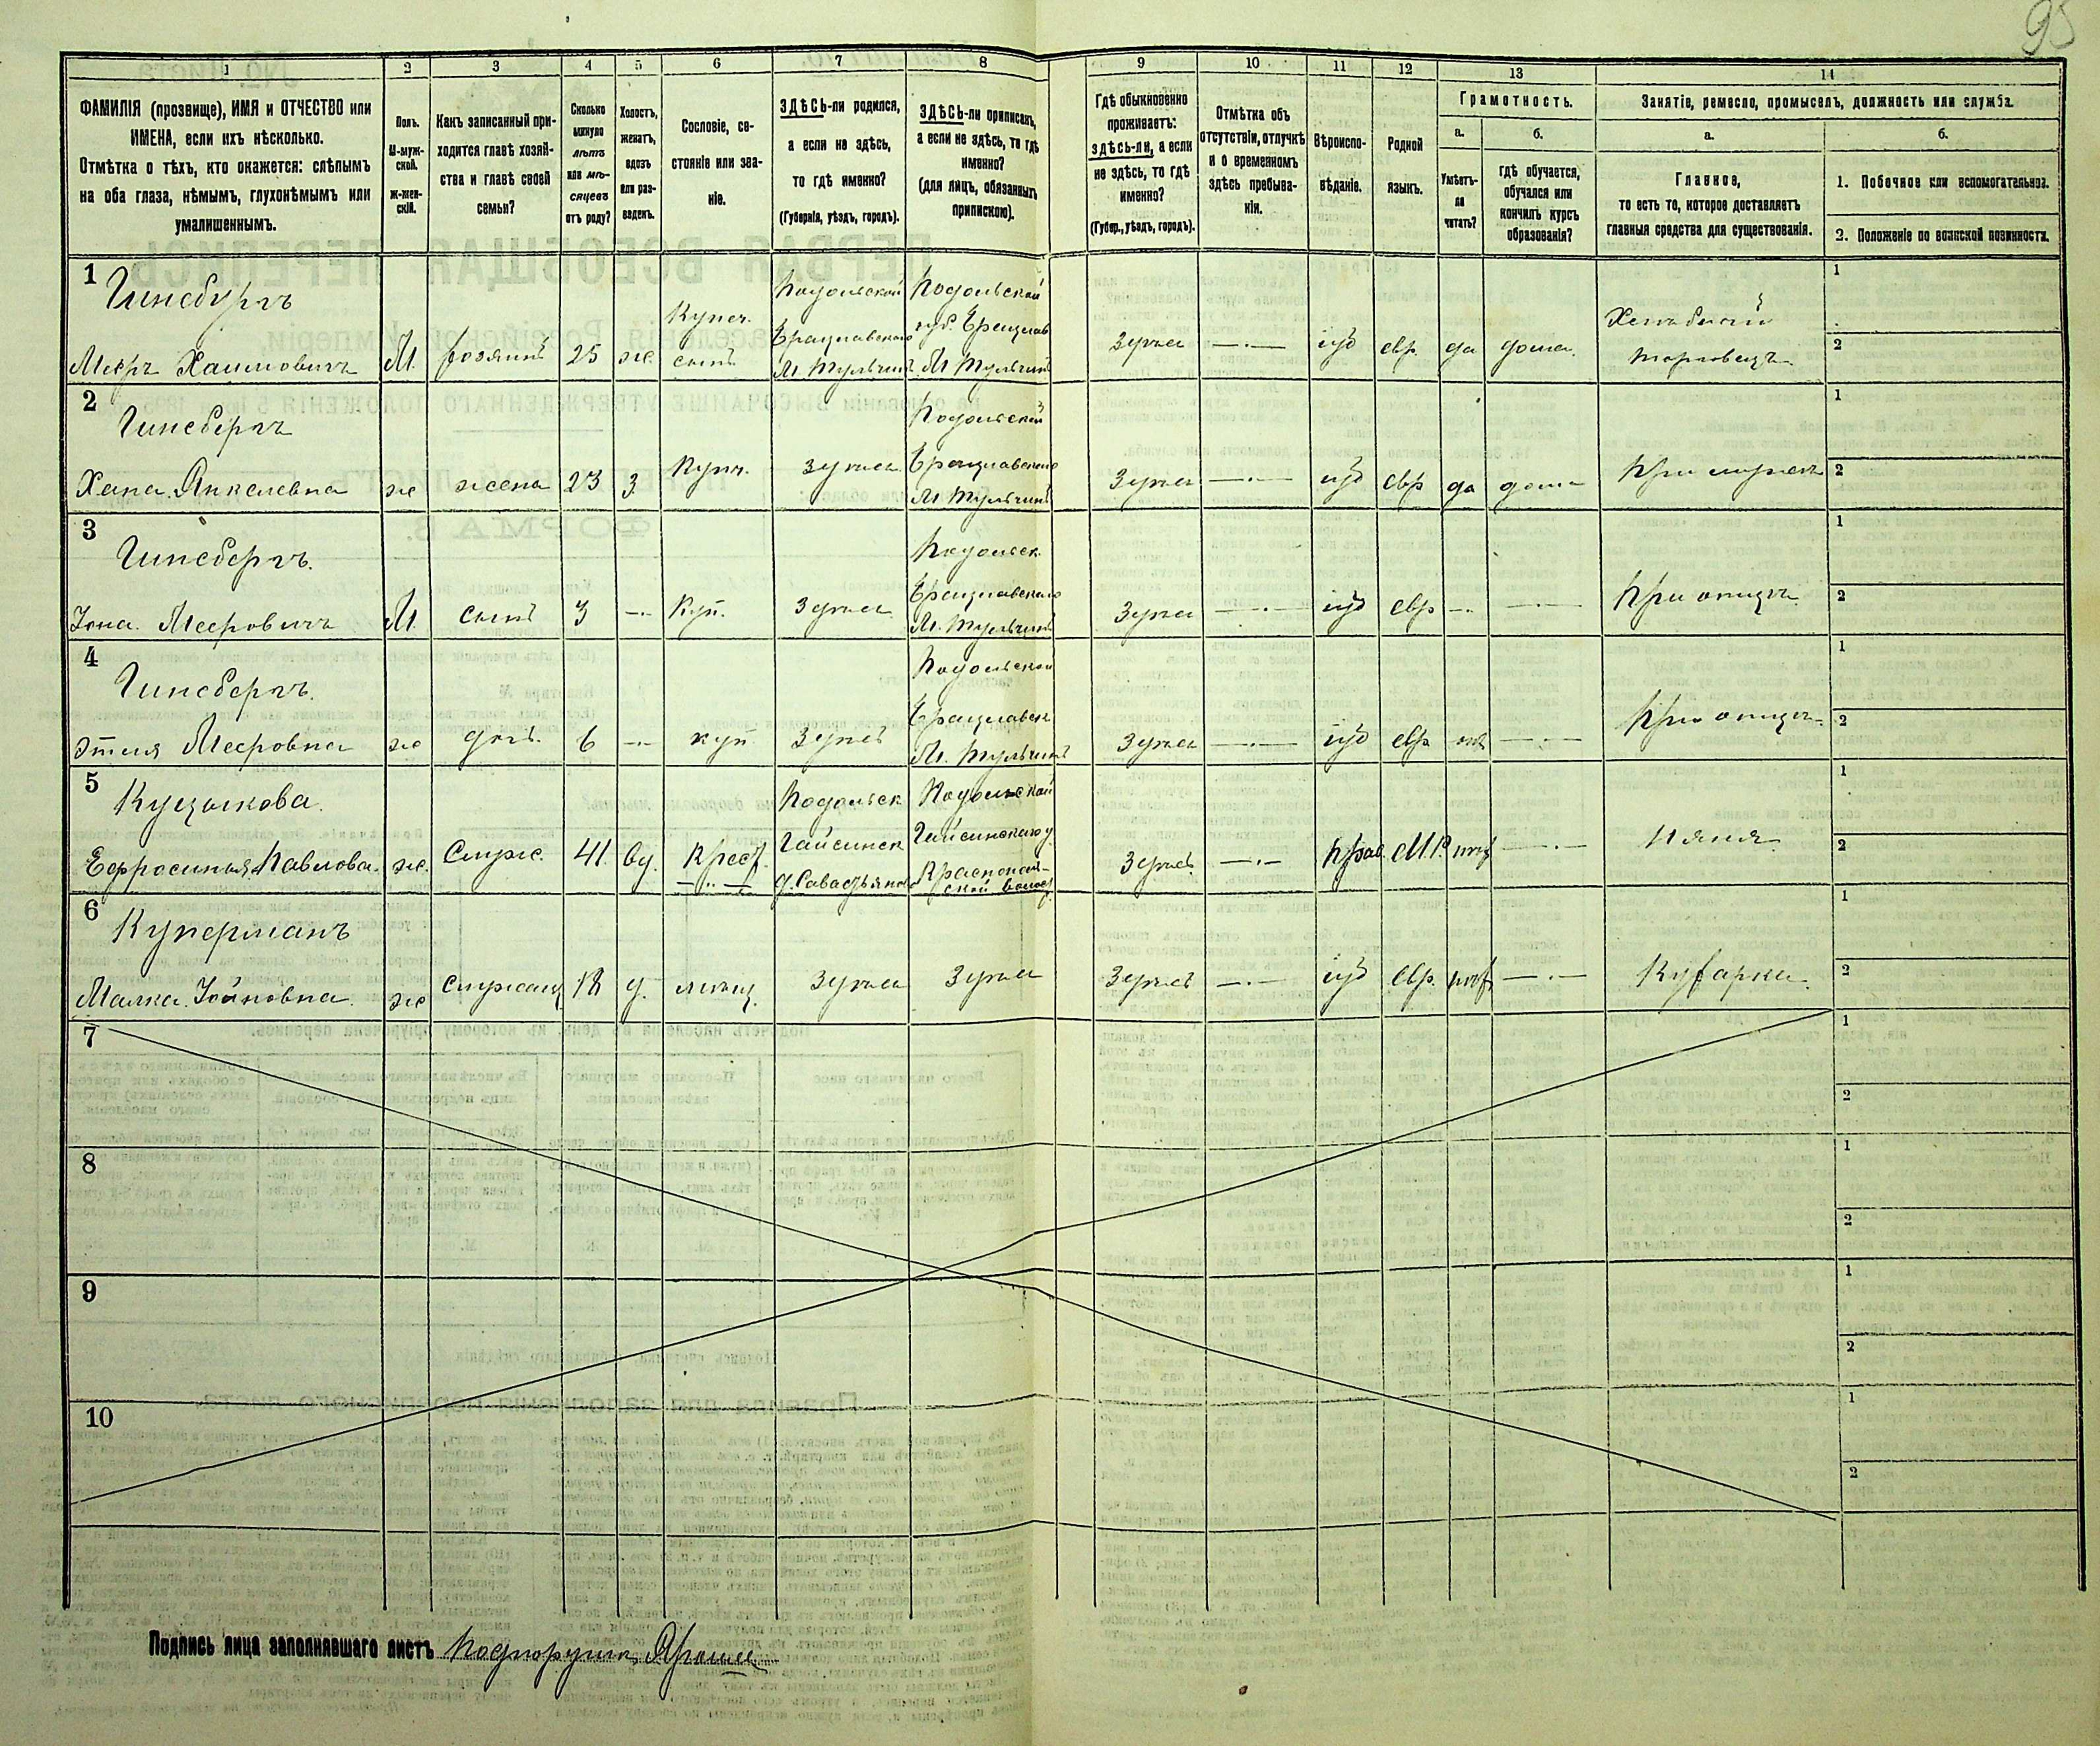 95
1 2 3 4 5 6 7 8 9 10 11 12 13 14
ФАМИЛІЯ (прозвище), ИМЯ и ОТЧЕСТВО или
ИМЕНА, если ихъ нѣсколько.
Отмѣтка о тѣхъ, кто окажется: слѣпымъ
на оба глаза, нѣмымъ, глухонѣмымъ или
умалишеннымъ.
Полъ.
М-муж-
ской.
Ж-жен-
скій.
Какъ записанный при-
ходится главѣ хозяй-
ства и главѣ своей
семьи?
Сколько
минуло
лѣтъ
или мѣ-
сяцевъ
отъ роду?
Холостъ,
женатъ,
вдовъ
или раз-
веденъ.
Сословіе, со-
стояніе или зва-
ніе.
ЗДѢСЬ-ли родился,
а если не здѣсь,
то гдѣ именно?
(Губернія, уѣздъ, городъ).
ЗДѢСЬ-ли приписанъ,
а если не здѣсь, то гдѣ
именно?
(для лицъ, обязанныхъ
припискою).
Гдѣ обыкновенно
проживаетъ:
здѣсь-ли, а если
не здѣсь, то гдѣ
именно?
(Губер., уѣздъ, городъ).
Отмѣтка объ
отсутствіи, отлучкѣ
и о временномъ
здѣсь пребыва-
ніи.
Вѣроиспо-
вѣданіе.
Родной
языкъ.
Грамотность.
а.
Умѣетъ-
ли
читать?
б.
Гдѣ обучается,
обучался или
кончилъ курсъ
образованія?
Занятіе, ремесло, промыселъ, должность или служба.
а.
Главное,
то есть то, которое доставляетъ
главныя средства для существованія.
б.
1. Побочное или вспомогательное.
2. Положеніе по воинской повинности.
1
Гинсбургъ
Мееръ Хаимовичъ
М.
хозяинъ
25
же.
Купеч.
сынъ
Подольской
Брацлавского
М Тульчинъ
Подольской
губ. Брацлав
М Тульчинъ
Здѣсь
іуд
евр
да
дома.
торговецъ
1
2
2
Гинсбергъ
Хана Янкелевна
же
жена
23
З
Купч.
Здѣсь
Подольской
Брацлавского
М Тульчинъ
Здѣсь
іуд
евр
да
дома
При мужѣ
1
2
3
Гинсбергъ.
Іона Мееровичъ
М.
сынъ
3
Куп.
Здѣсь
Подольск
Брацлавского
М. Тульчинъ
Здѣсь
іуд
евр
При отцѣ
1
2
4
Гинсбергъ.
Этля Мееровна
же
доч.
6
куп
Здѣсь
Подольской
Брацлавск
М. Тульчинъ
Здѣсь
іуд
евр
нѣт
При отцѣ
1
2
5
Ефросинья Павлова.
же.
Служ.
41.
вд.
Крест.
Подольск
Гайсинск
Подольской
Гайсинского у
Краснополь-
ской волост.
Здѣсь
Прав.
М.Р.
нѣт
Няня
1
2
6
Куперманъ
Малка Іойновна.
же
Служащ
18
д.
мѣщ.
Здѣсь
Здѣсь
Здѣсь
іуд
Евр.
нѣт
Кухарка
1
2
7
1
2
8
1
2
9
1
2
10
1
2
Подпись лица заполнявшаго листъ